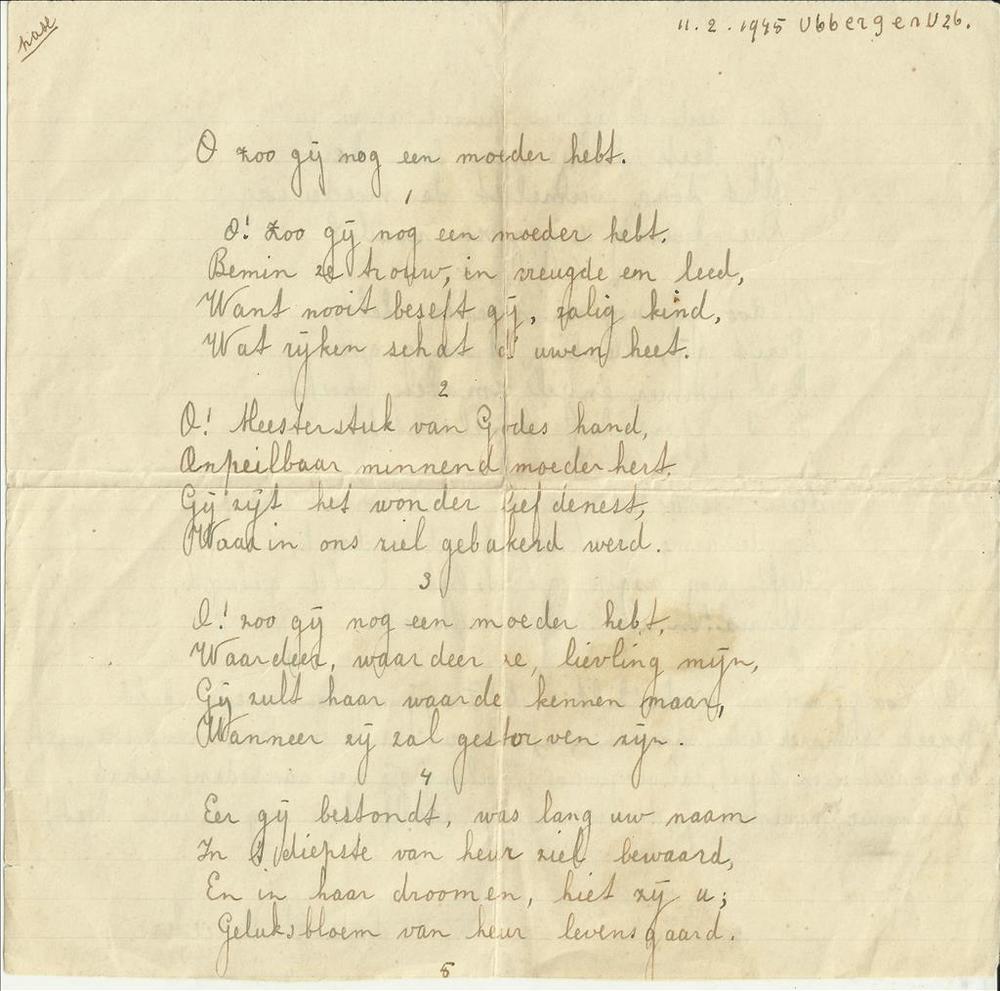 11.2.1945 Ubbergen U26.
O zoo gij nog een moeder hebt.
1
O! zoo gij nog een moeder hebt,
Bemin ze trouw, in vreugde en leed,
Want nooit beseft gij, zalig kind,
Wat rijken schat d' uwen heet.
2
O! Meesterstuk van Godes hand,
Onpeilbaar minnend moederhert.
Gij zijt het wonder liefdenest,
Waarin ons ziel gebakerd werd.
3
O! zoo gij nog een moeder hebt,
Waardeer, waardeer ze, lievling mijn,
Gij zult haar waarde kennen maar,
Wanneer zij zal gestorven zijn.
4
Eer gij bestondt, was lang uw naam
In 't diepste van heur ziel bewaard,
En in haar droomen, hiet zij u;
Geluksbloem van heur levensgaard.
5